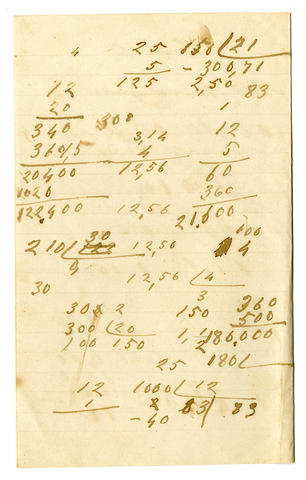 4 25 150 21
5 - 300,71
12 125 2,50 83
20 1
340 300 12
360,5 3,14 5
4
20400 12,56 60
1020 360
122400 12,56 21,000
30 100
210 12,56 4
9 12,56 4
30 3
30 x 2 150 360
300 20 500
100 150 180,000
25 180
12 1000 12
1 83 83
- 40